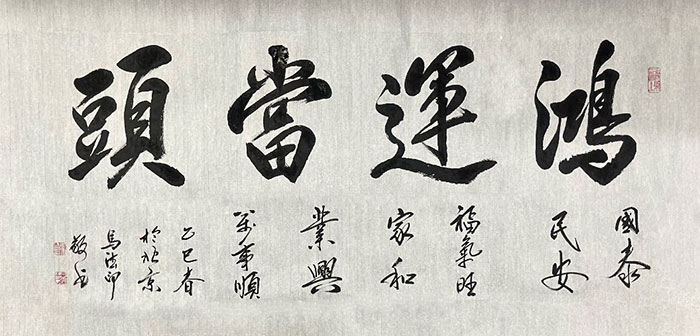 鴻運當頭
國泰
民安
福氣旺
家和
業興
萬事順
乙巳春
於北京
敬书